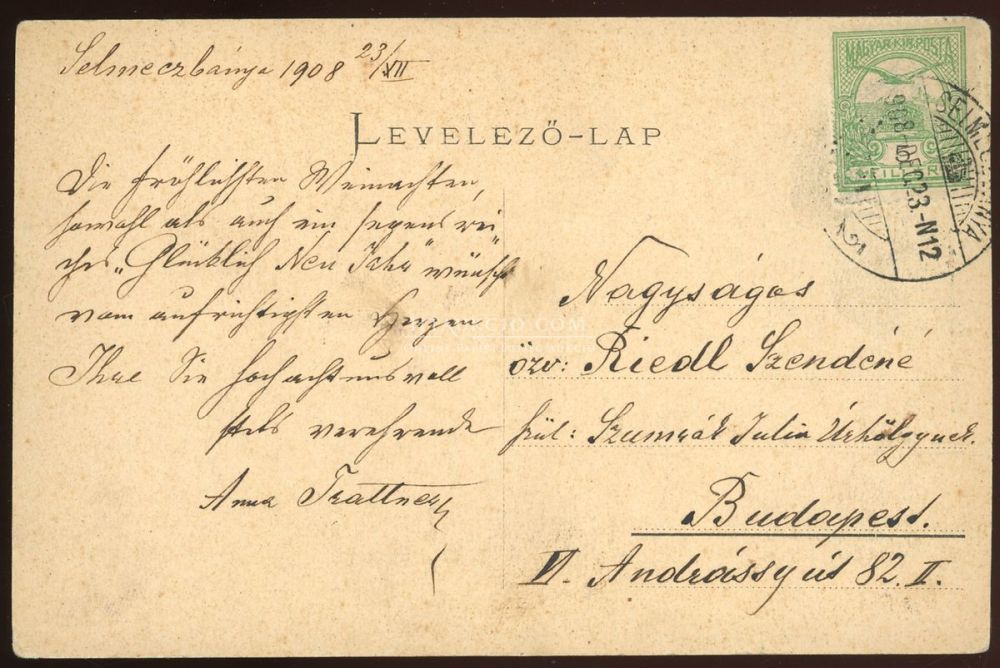 Selmeczbánya 1908 23/XII
LEVELEZŐ-LAP
MAGYAR KIR. POSTA
FILLÉR
SELMECZBÁNYA
908 DEC 23-N12
Die fröhlichsten Weinachten,
sowohl als auch ein segensrei
ches „Glücklich Neu Jahr" wünscht
vom aufrichtigsten Herzen
Ihre Sie hochachtungsvoll
stets verehrende
Anna Trattner
Nagyságos
özv: Riedl Szendéné
szül: Szumrák Julia Úrhölgynek.
Budapest.
VI. Andrássy út 82. II.